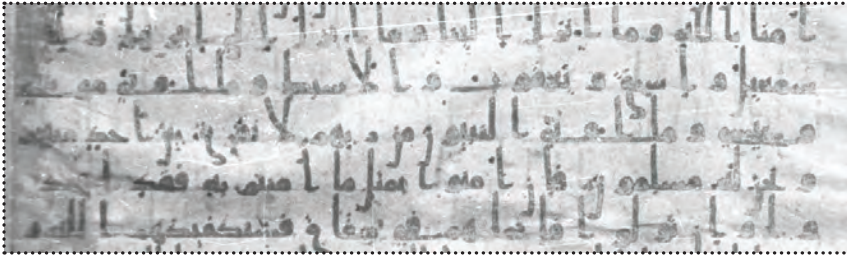 امنا بالله وما انزل الينا وما انزل الى ابرهيم و
سمعيل و اسحق و يعقوب و الاسبط و ما اوتى موسى
و عيسى و ما اوتى النبيون من ربهم لا نفرق بين احد منهم
و نحن له مسلمون فان امنوا بمثل ما امنتم به فقد اهتد
وا و ان تولوا فانما هم فى شقاق فسيكفيكهم الله و